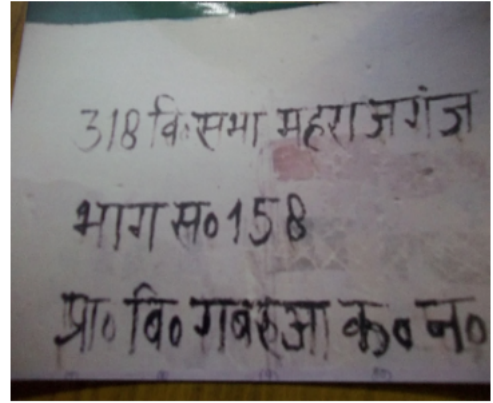 318 वि.सभा महराजगंज
भाग स० 158
प्रा० वि० गबरुआ क० न०